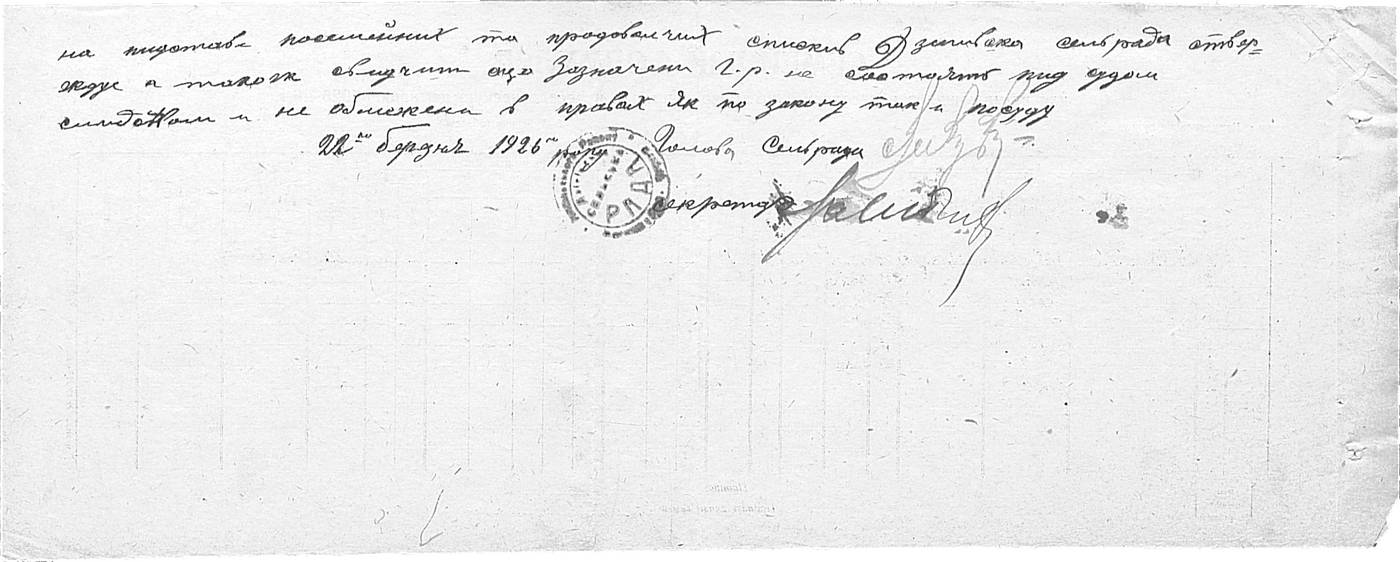 на пидстави посемейних та продовольчих спискив Дзиивска сельрада ствер-
ждує а також свидчит що Зазначени Г.р. не состоять пид судом
слидством и не обмежени в правах як по закону так и по суду
22го березня 1926го року Голова Сельради
РАДА
Секретарь